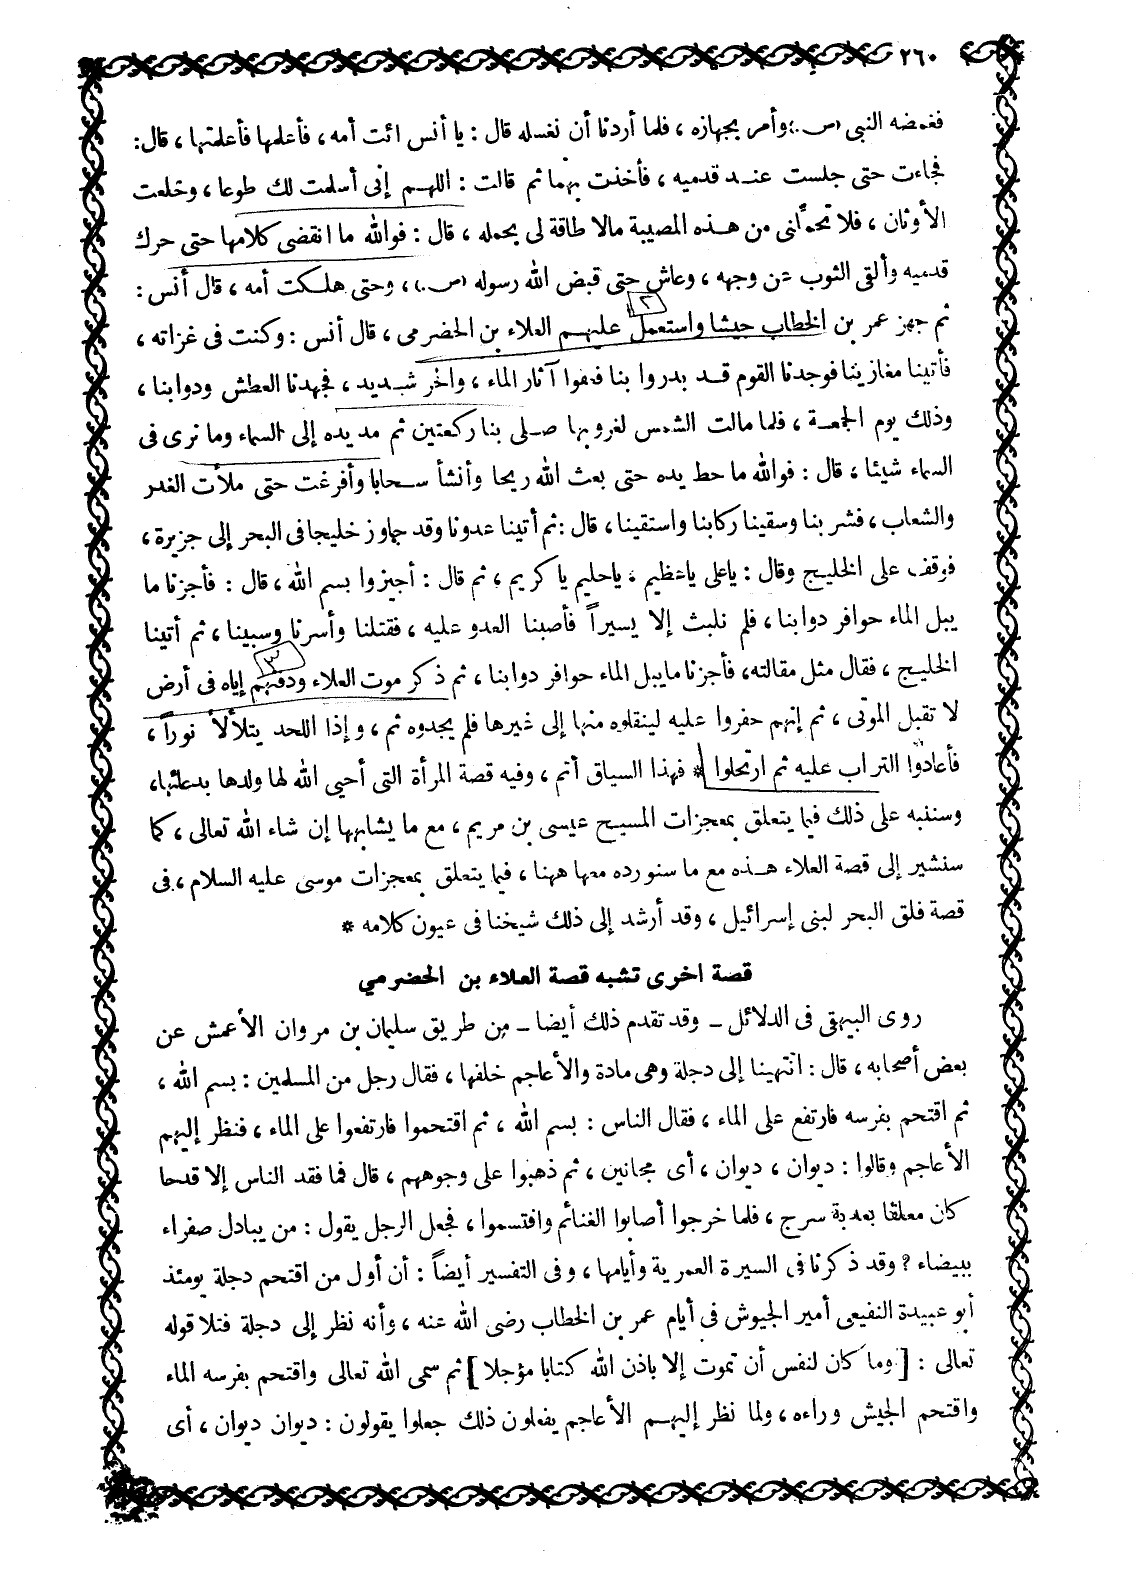 ٢٦٠
فغمضه النبي (ص.) وأمر بجهازه ، فلما أردنا أن نغسله قال : يا أنس ائت أمه ، فأعلمها فأعلمتها ، قال :
فجاءت حتى جلست عند قدميه ، فأخذت بهما ثم قالت : اللهم إنى أسلمت لك طوعا ، وخلعت
الأوثان ، فلا تحملنى من هذه المصيبة مالا طاقة لى بحمله ، قال : فوالله ما انقضى كلامها حتى حرك
قدميه وألقى الثوب عن وجهه ، وعاش حتى قبض الله رسوله (ص.) ، وحتى هلكت أمه ، قال أنس :
٢
ثم جهز عمر بن الخطاب جيشا واستعمل عليهم العلاء بن الحضرمى ، قال أنس : وكنت فى غزاته ،
فأتينا مغازينا فوجدنا القوم قد بدروا بنا فعفوا آثار الماء ، والحر شديد ، فجهدنا العطش ودوابنا ،
وذلك يوم الجمعة ، فلما مالت الشمس لغروبها صلى بنا ركعتين ثم مد يده إلى السماء وما نرى فى
السماء شيئا ، قال : فوالله ما حط يده حتى بعث الله ريحا وأنشأ سحابا وأفرغت حتى ملأت الغدر
والشعاب ، فشربنا وسقينا ركابنا واستقينا ، قال : ثم أتينا عدونا وقد جاوز خليجا فى البحر إلى جزيرة ،
فوقف على الخليج وقال : يا على يا عظيم ، يا حليم يا كريم ، ثم قال : أجيزوا بسم الله ، قال : فأجزنا ما
يبل الماء حوافر دوابنا ، فلم نلبث إلا يسيراً فأصبنا العدو عليه ، فقتلنا وأسرنا وسبينا ، ثم أتينا
الخليج ، فقال مثل مقالته، فأجزنا ما يبل الماء حوافر دوابنا ، ثم ذكر موت العلاء ودفنهم إياه فى أرض
٣
لا تقبل الموتى ، ثم إنهم حفروا عليه لينقلوه منها إلى غيرها فلم يجدوه ثم ، وإذا اللحد يتلألأ نوراً ،
فأعادوا التراب عليه ثم ارتحلوا * فهذا السياق أتم ، وفيه قصة المرأة التى أحيى الله لها ولدها بدعائها،
وسننبه على ذلك فيما يتعلق بمعجزات المسيح عيسى بن مريم ، مع ما يشابهها إن شاء الله تعالى ، كما
سنشير إلى قصة العلاء هذه مع ما سنورده معها ههنا ، فيما يتعلق بمعجزات موسى عليه السلام ، فى
قصة فلق البحر لبنى إسرائيل ، وقد أرشد إلى ذلك شيخنا فى عيون كلامه *
قصة اخرى تشبه قصة العلاء بن الحضرمي
روى البيهقى فى الدلائل - وقد تقدم ذلك أيضا - من طريق سليمان بن مروان الأعمش عن
بعض أصحابه ، قال : انتهينا إلى دجلة وهى مادة والأعاجم خلفها ، فقال رجل من المسلمين : بسم الله ،
ثم اقتحم بفرسه فارتفع على الماء ، فقال الناس : بسم الله ، ثم اقتحموا فارتفعوا على الماء ، فنظر إليهم
الأعاجم وقالوا : ديوان ، ديوان ، أى مجانين ، ثم ذهبوا على وجوههم ، قال فما فقد الناس إلا قدحا
كان معلقا بعذبة سرج ، فلما خرجوا أصابوا الغنائم واقتسموا ، فجعل الرجل يقول : من يبادل صفراء
ببيضاء ؟ وقد ذكرنا فى السيرة العمرية وأيامها ، وفى التفسير أيضاً : أن أول من اقتحم دجلة يومئذ
أبو عبيدة النفيعى أمير الجيوش فى أيام عمر بن الخطاب رضى الله عنه ، وأنه نظر إلى دجلة فتلا قوله
تعالى : [ وما كان لنفس أن تموت إلا باذن الله كتابا مؤجلا ] ثم سمى الله تعالى واقتحم بفرسه الماء
واقتحم الجيش وراءه ، ولما نظر إليهم الأعاجم يفعلون ذلك جعلوا يقولون : ديوان ديوان ، أى